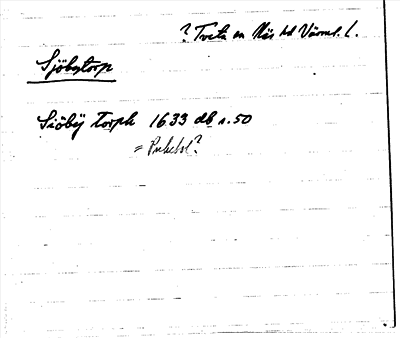 ? Tveta sn Näs hd Värml. l.
Sjöbytorp
Siöbÿ torph 1633 db s. 50
= ?